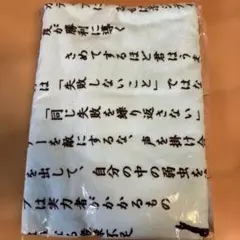 が勝利に導く
さめてするほど君はうま
は「失敗しないこと」ではな
「同じ失敗を繰り返さない」
ーを敵にするな、声を掛け合
を出して、自分の中の弱虫を
プは実力者がかかるもの